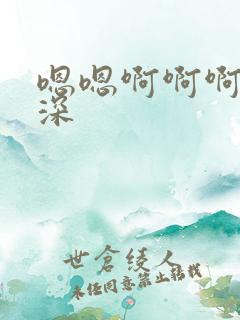 嗯嗯啊啊啊
深
世倉绫人
未经同意禁止转载